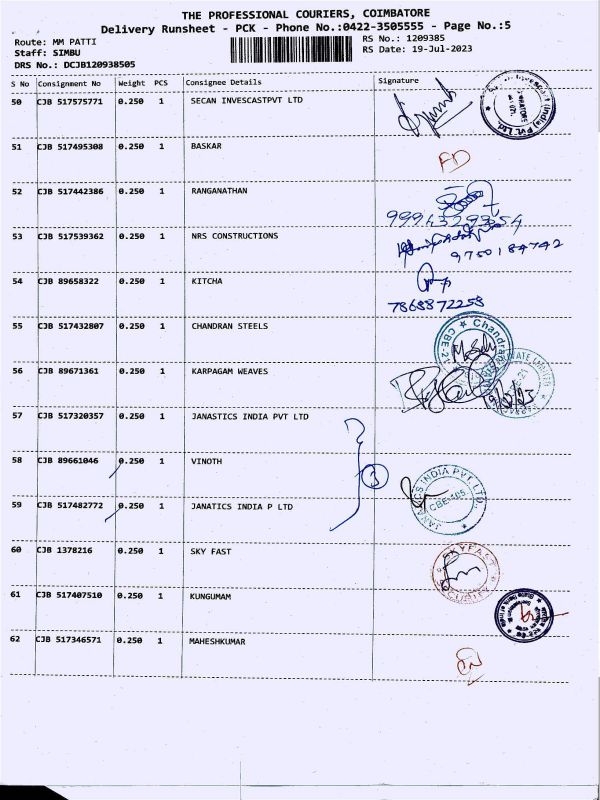 THE PROFESSIONAL COURIERS, COIMBATORE
Delivery Runsheet - PCK - Phone No.:0422-3505555 - Page No.:5
Route: MM PATTI
RS No.: 1209385
Staff: SIMBU
RS Date: 19-Jul-2023
DRS No.: DCJB120938505
S No Consignment No Weight PCS Consignee Details Signature
50 CJB 517575771 0.250 1 SECAN INVESCASTPVT LTD
51 CJB 517495308 0.250 1 BASKAR FD
52 CJB 517442386 0.250 1 RANGANATHAN
53 CJB 517539362 0.250 1 NRS CONSTRUCTIONS
9750184742
54 CJB 89658322 0.250 1 KITCHA
7868872258
55 CJB 517432807 0.250 1 CHANDRAN STEELS
56 CJB 89671361 0.250 1 KARPAGAM WEAVES
57 CJB 517320357 0.250 1 JANASTICS INDIA PVT LTD
58 CJB 89661046 0.250 1 VINOTH 3
59 CJB 517482772 0.250 1 JANATICS INDIA P LTD JANATICS INDIA PVT. LTD.
60 CJB 1378216 0.250 1 SKY FAST SKYFAST
61 CJB 517407510 0.250 1 KUNGUMAM
62 CJB 517346571 0.250 1 MAHESHKUMAR